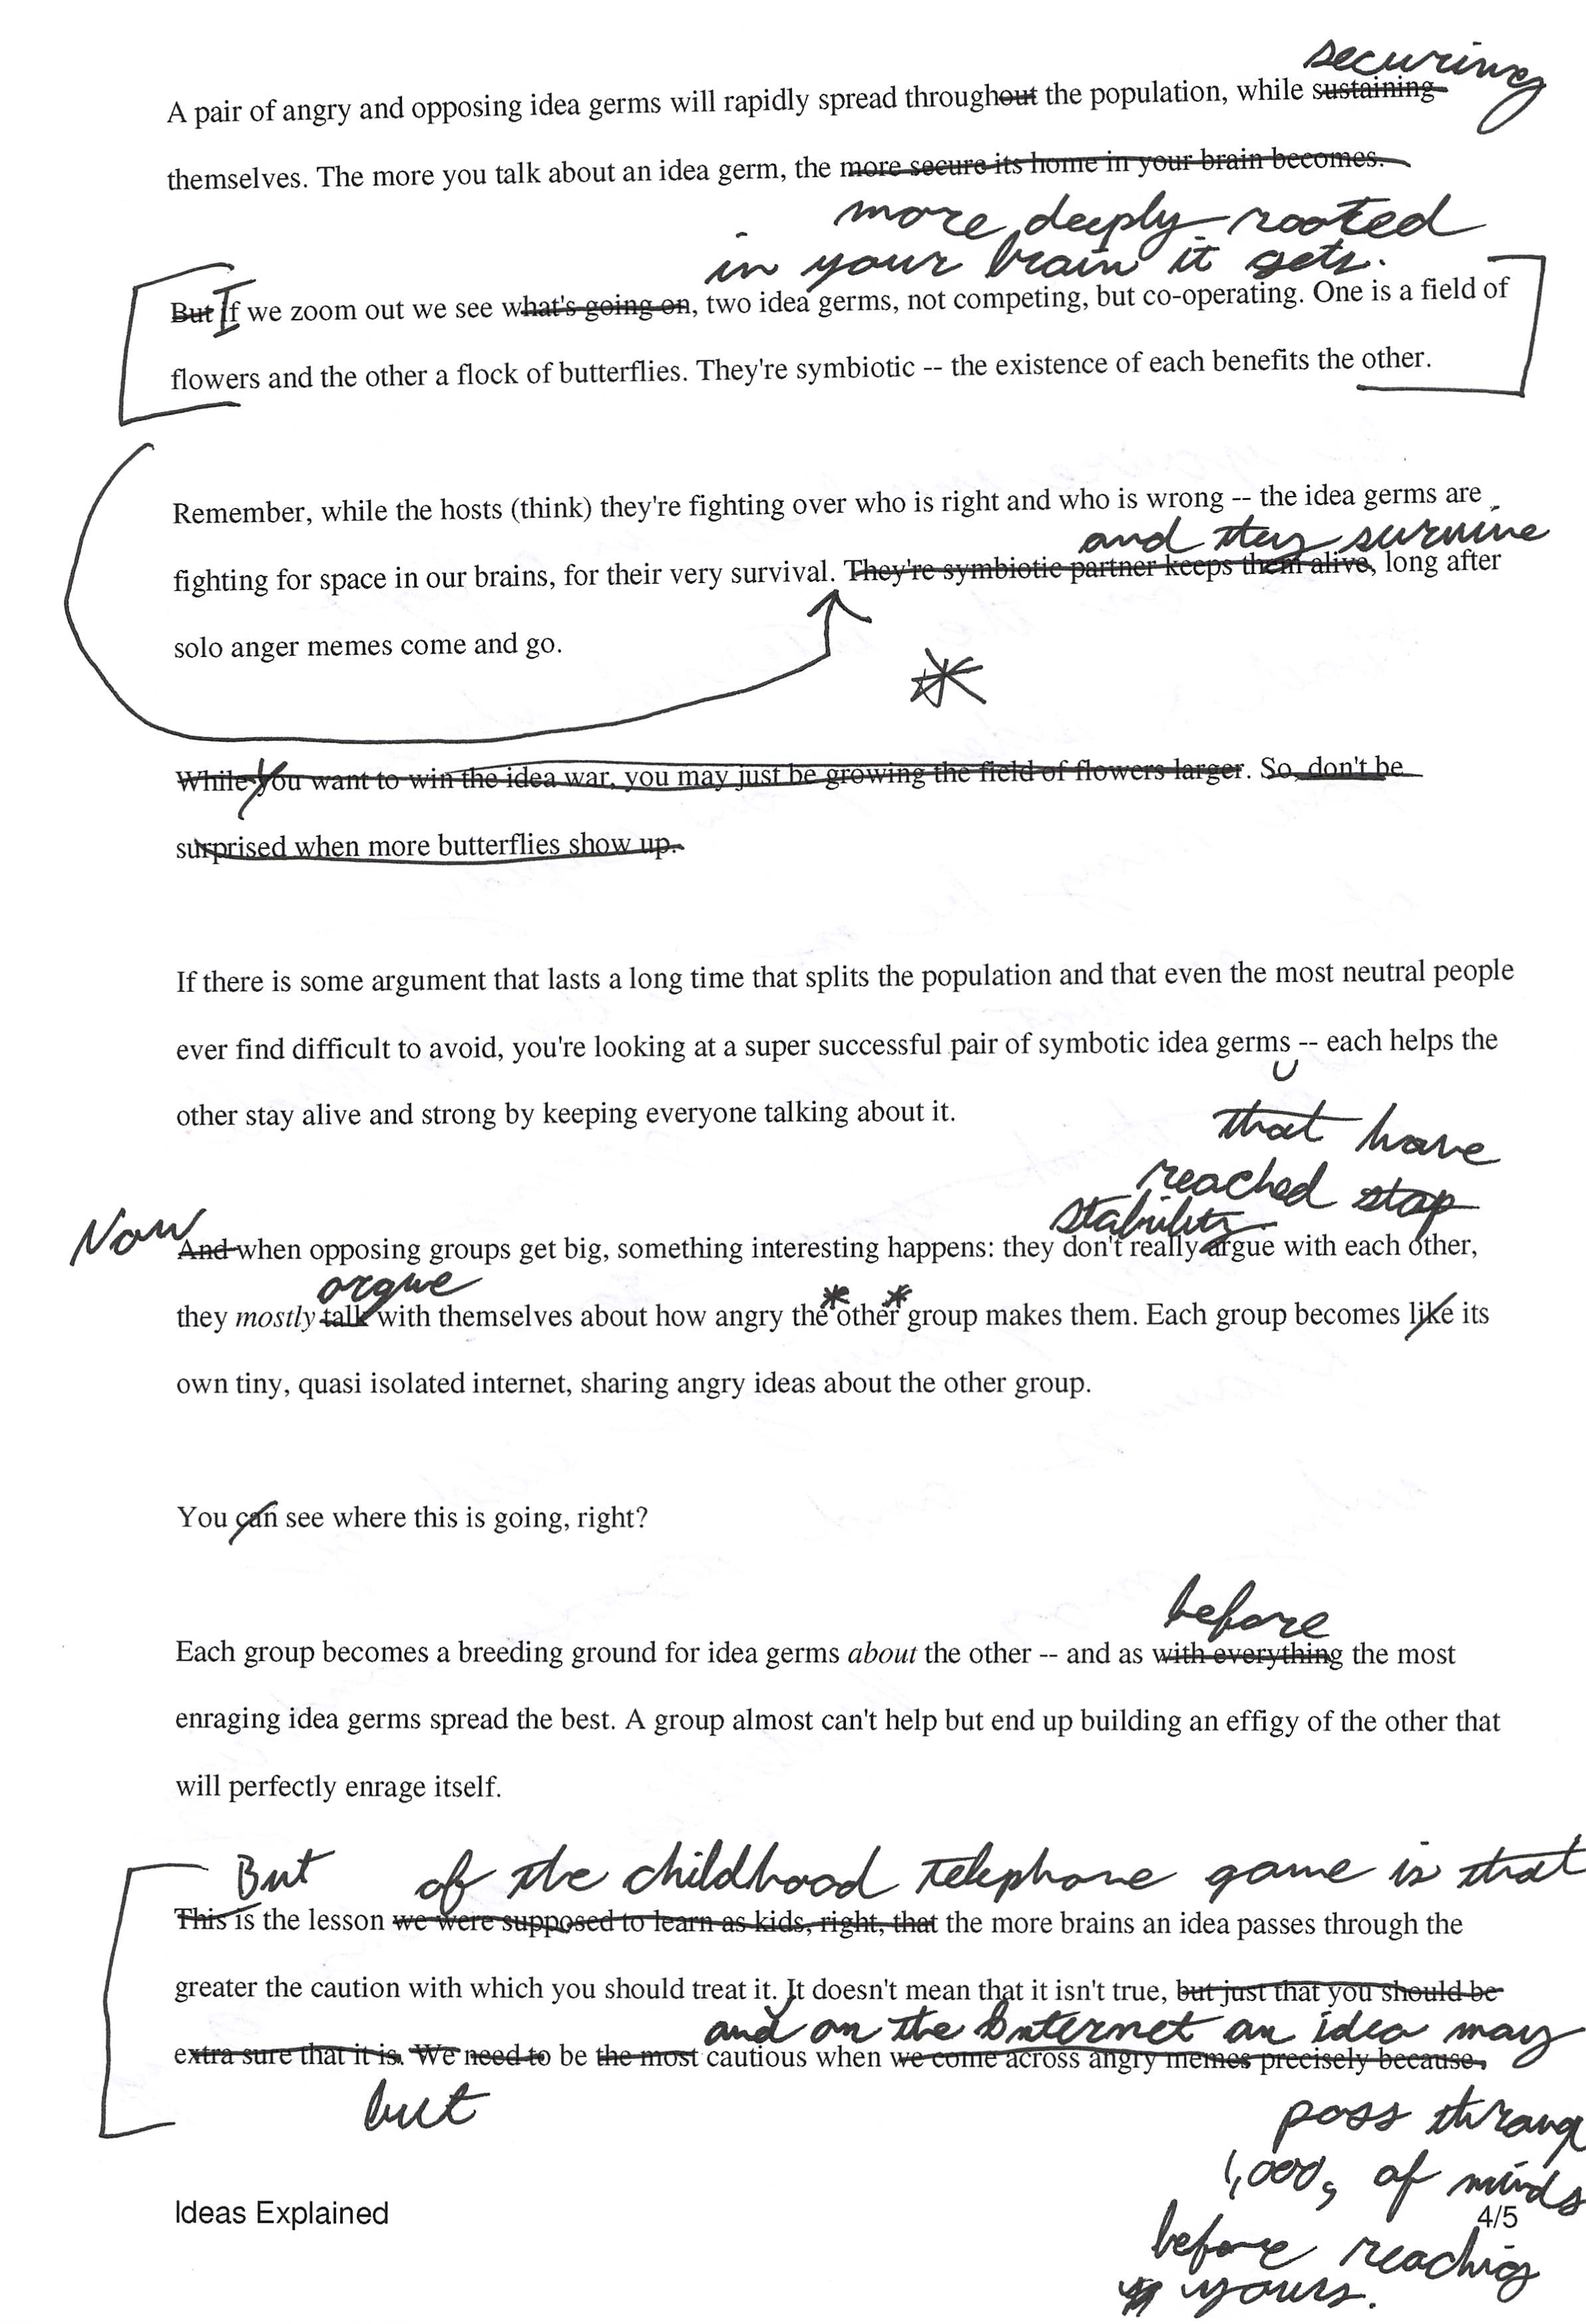 securing
A pair of angry and opposing idea germs will rapidly spread throughout the population, while sustaining
themselves. The more you talk about an idea germ, the more secure its home in your brain becomes.
more deeply rooted
in your brain it gets.
But If we zoom out we see what's going on, two idea germs, not competing, but co-operating. One is a field of
flowers and the other a flock of butterflies. They're symbiotic -- the existence of each benefits the other.
Remember, while the hosts (think) they're fighting over who is right and who is wrong -- the idea germs are
and they survive
fighting for space in our brains, for their very survival. They're symbiotic partner keeps them alive, long after
solo anger memes come and go.
*
While you want to win the idea war, you may just be growing the field of flowers larger. So, don't be
surprised when more butterflies show up.
If there is some argument that lasts a long time that splits the population and that even the most neutral people
ever find difficult to avoid, you're looking at a super successful pair of symbotic idea germs -- each helps the
other stay alive and strong by keeping everyone talking about it.
that have
reached stap
stability
Now And when opposing groups get big, something interesting happens: they don't really argue with each other,
argue
they mostly talk with themselves about how angry the *other* group makes them. Each group becomes like its
own tiny, quasi isolated internet, sharing angry ideas about the other group.
You can see where this is going, right?
before
Each group becomes a breeding ground for idea germs about the other -- and as with everything the most
enraging idea germs spread the best. A group almost can't help but end up building an effigy of the other that
will perfectly enrage itself.
But of the childhood telephone game is that
This is the lesson we were supposed to learn as kids, right, that the more brains an idea passes through the
greater the caution with which you should treat it. It doesn't mean that it isn't true, but just that you should be
and on the Internet an idea may
extra sure that it is. We need to be the most cautious when we come across angry memes precisely because,
but
pass throug
1,000s of minds
before reaching
yours.
Ideas Explained
4/5